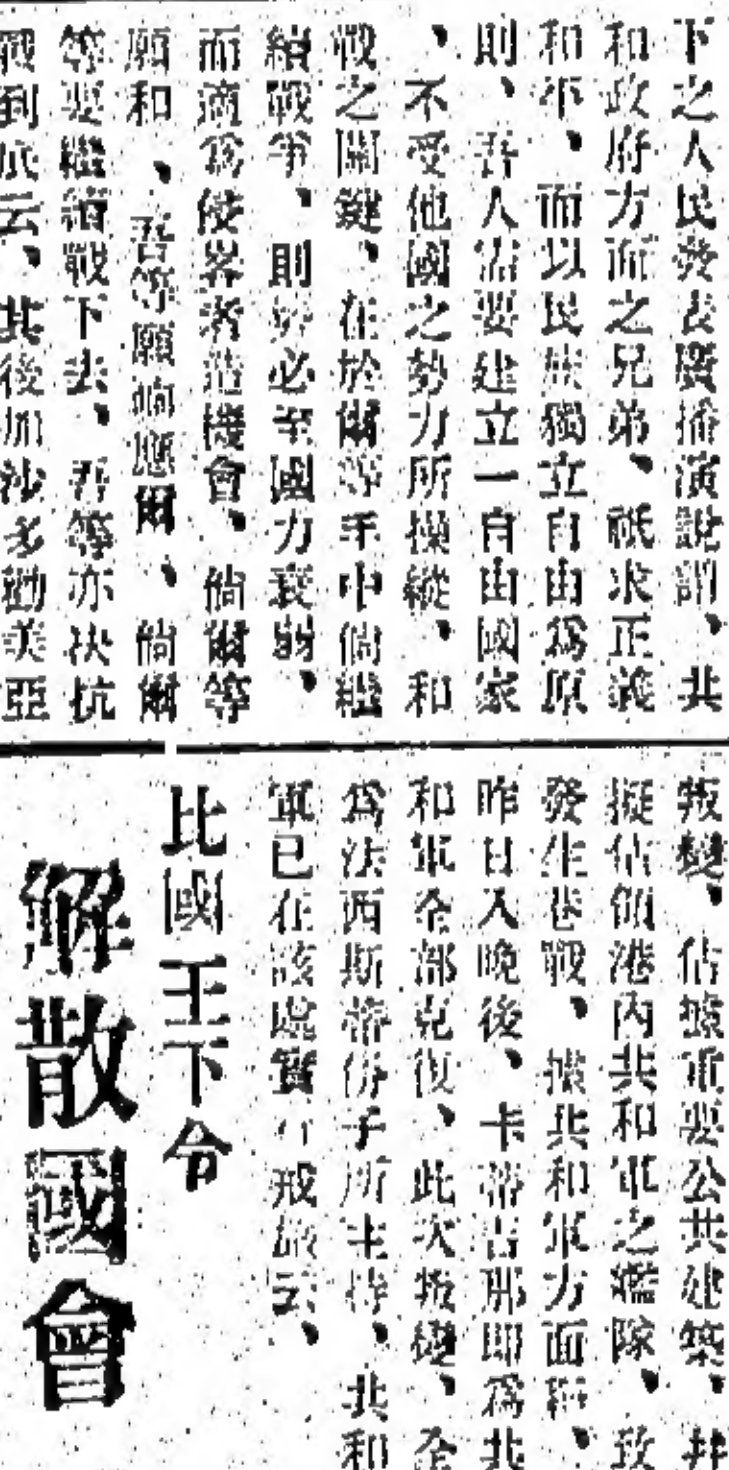 下之人民發表廣播演說謂、共
和政府方面之兄弟、祇求正義
和平、而以民族獨立自由爲原
則、吾人需要建立一自由國家
、不受他國之勢力所操縱、和
戰之關鍵、在於爾等手中倘繼
續戰爭、則勢必至國力衰弱、
而適爲侵畧者造機會、倘爾等
願和、吾等願响應爾、倘爾
等要繼續戰下去、吾等亦决抗
戰到底云、其後加沙多勸美亞
叛變、佔據重要公共建築、幷
擬佔領港內共和軍之艦隊、致
發生巷戰、據共和軍方面稱、
昨日入晚後、卡蒂吉那即爲共
和軍全部克復、此次叛變、全
爲法西斯蒂份子所主持、共和
軍已在該處實行戒嚴云、
比國王下令
解散國會